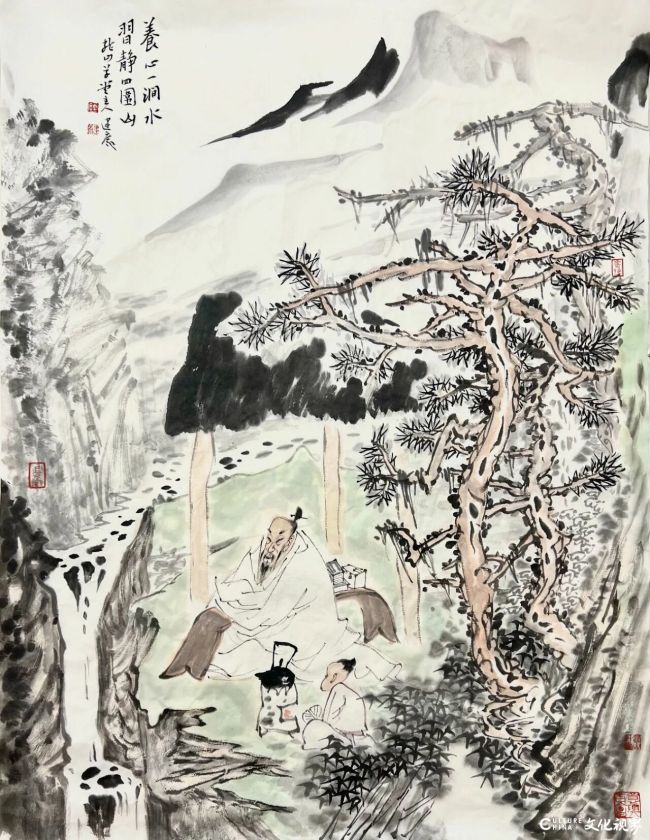 養心一澗水
習靜四圍山
北山草堂主人
CULTURE
CHINA
文化视界